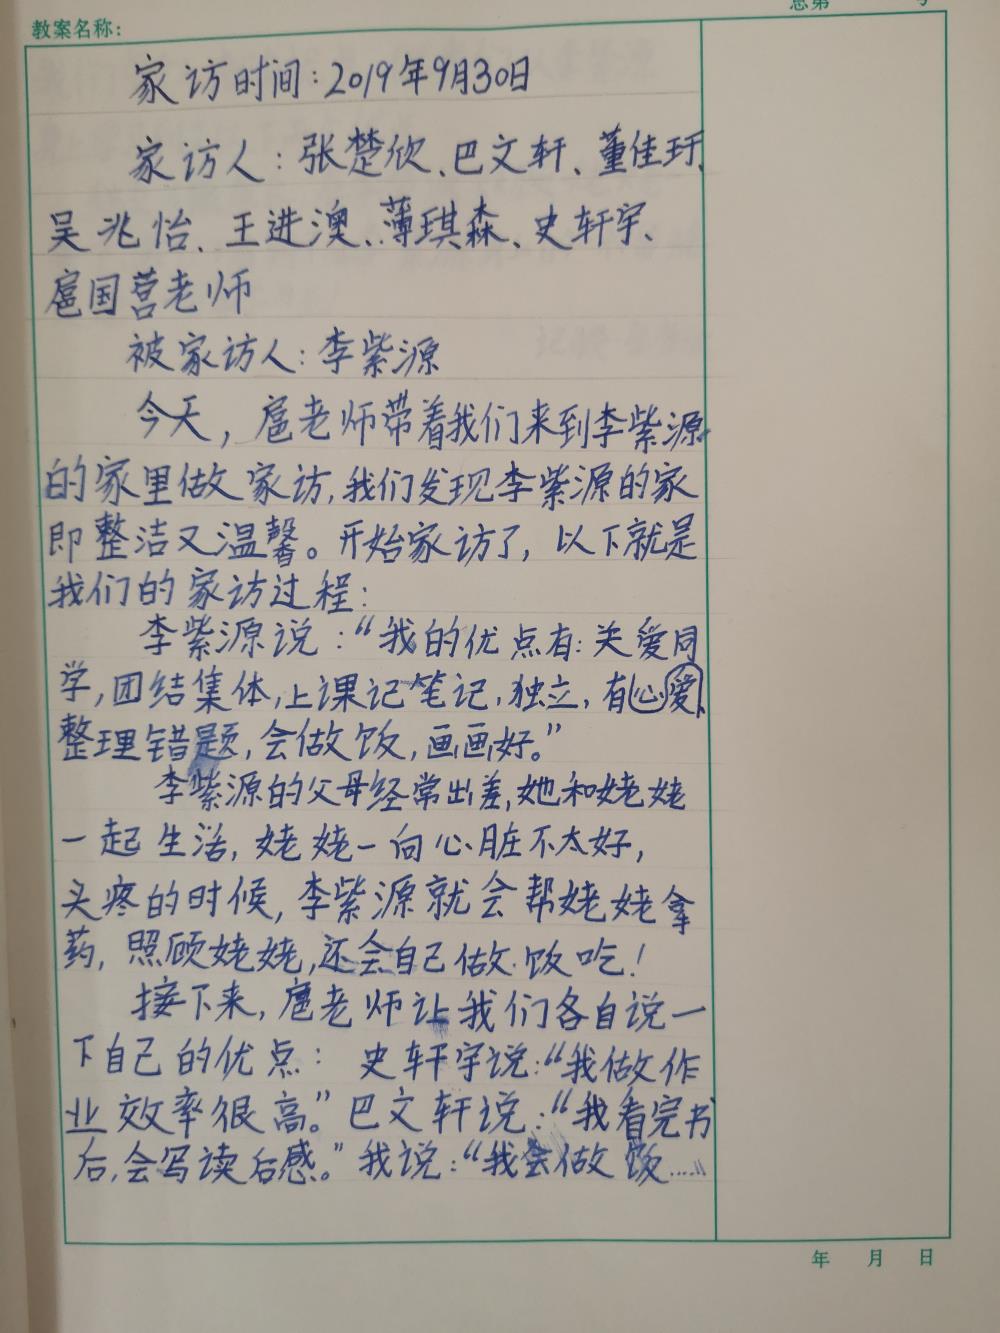 总第
教案名称:
家访时间:2019年9月30日
家访人:张楚欣、巴文轩、董佳玗、
吴兆怡、王进澳、薄琪森、史轩宇、
扈国营老师
被家访人:李紫源
今天,扈老师带着我们来到李紫源
的家里做家访,我们发现李紫源的家
即整洁又温馨。开始家访了,以下就是
我们的家访过程:
李紫源说:“我的优点有:关爱同
学,团结集体,上课记笔记,独立,有心爱、
整理错题,会做饭,画画好。”
李紫源的父母经常出差,她和姥姥
一起生活,姥姥一向心脏不太好,
头疼的时候,李紫源就会帮姥姥拿
药,照顾姥姥,还会自己做饭吃!
接下来,扈老师让我们各自说一
下自己的优点: 史轩宇说:“我做作
业效率很高。”巴文轩说:“我看完书
后,会写读后感。”我说:“我会做饭……”
年 月 日